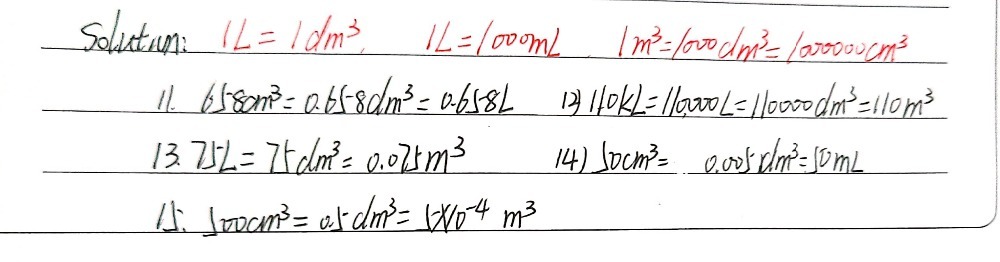 Solution: 1L = 1dm³, 1L = 1000mL 1m³ = 1000dm³ = 1000000cm³
11. 658cm³ = 0.658dm³ = 0.658L 12) 110kL = 110,000L = 110000dm³ = 110m³
13. 75L = 75dm³ = 0.075m³ 14) 50cm³ = 0.005dm³ = 50mL
15. 500cm³ = 0.5dm³ = 5×10⁻⁴ m³